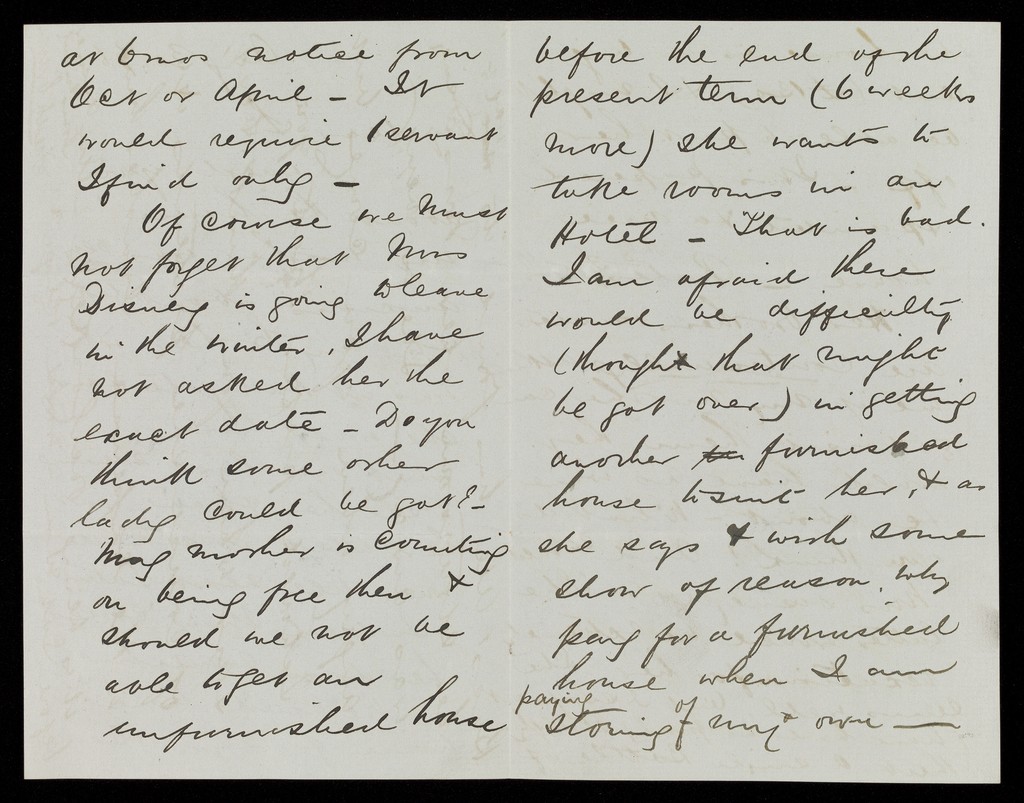 at 6mos notice from
Oct or April – It
would require 1 servant
I find only –
Of course we must
not forget that Mrs
Disney is going to leave
in the winter, I have
not asked her the
exact date – Do you
think some other
lady could be got? –
My mother is counting
on being free then &
should we not be
able to get an
unfurnished house
before the end of the
present term (6 weeks
more) she wants to
take rooms in an
Hotel – That is bad.
I am afraid there
would be difficulty
(though that might
be got over) in getting
another furnished
house to suit her, & as
she says & with some
show of reason, why
pay for a furnished
house when I am
paying
storing of my own —